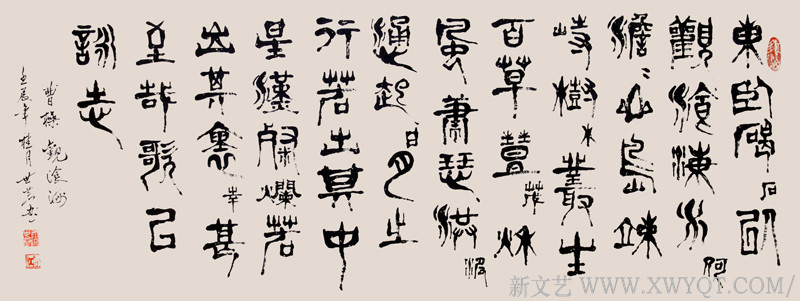 東臨碣石以
觀滄海水何
澹〻山島竦
峙樹木叢生
百草豐茂秋
風蕭瑟洪波
涌起日月之
行若出其中
星漢粲爛若
出其裏幸甚
至哉歌以
詠志
曹操觀滄海
壬辰年桂月世書
新文艺 WWW.XWYQT.COM